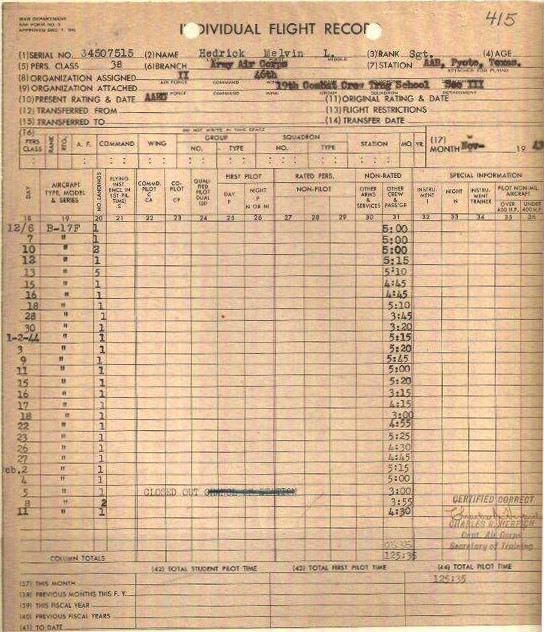 WAR DEPARTMENT
INDIVIDUAL FLIGHT RECORD
415
(1) SERIAL NO. 34507515 (2) NAME Hedrick Melvin L. (3) RANK Sgt. (4) AGE
(5) PERS. CLASS 38 (6) BRANCH Army Air Corps (7) STATION AAB, Pyote, Texas.
(8) ORGANIZATION ASSIGNED II 46th
(9) ORGANIZATION ATTACHED 19th Combat Crew Trng School See III
(10) PRESENT RATING & DATE (11) ORIGINAL RATING & DATE
(12) TRANSFERRED FROM (13) FLIGHT RESTRICTIONS
(15) TRANSFERRED TO (14) TRANSFER DATE
DO NOT WRITE IN THIS SPACE
(16) PERS CLASS RANK A. F. COMMAND WING GROUP NO. TYPE SQUADRON NO. TYPE STATION MO. YR. (17) MONTH Nov- 19 43
DAY AIRCRAFT TYPE, MODEL & SERIES NO. LANDINGS FLYING INST. COMMD. PILOT CA CO-PILOT CP QUALIFIED PILOT DUAL FIRST PILOT DAY P NIGHT P RATED PERS. NON-PILOT NON-RATED OTHER ARMS & SERVICES OTHER CREW & PASS'GR SPECIAL INFORMATION INSTRUMENT I NIGHT N INSTR. TRAINER PILOT NON-MIL AIRCRAFT OVER 400 H.P. UNDER 400 H.P.
18 19 20 21 22 23 24 25 26 27 28 29 30 31 32 33 34 35 36
12/6 B-17F 1 5:00
7 " 1 5:00
10 " 2 5:00
12 " 1 5:15
13 " 5 5:10
15 " 1 4:45
16 " 1 4:45
18 " 1 5:10
28 " 1 3:45
30 " 1 3:20
1-2-44 " 1 5:15
3 " 1 5:20
9 " 1 5:45
11 " 1 5:00
15 " 1 5:20
16 " 1 3:15
17 " 1 4:15
18 " 1 3:00
22 " 1 4:55
23 " 1 5:25
26 " 1 4:30
27 " 1 4:45
eb.2 " 1 5:15
4 " 1 5:00
5 " 1 CLOSED OUT CHANGE OF STATION 3:00
8 " 2 3:55
11 " 1 4:30
CERTIFIED CORRECT
CHARLES R. HERPICH
Capt. Air Corps
Secretary of Training
COLUMN TOTALS 125:35
(42) TOTAL STUDENT PILOT TIME (43) TOTAL FIRST PILOT TIME (44) TOTAL PILOT TIME
(37) THIS MONTH 125:35
(38) PREVIOUS MONTHS THIS F. Y.
(39) THIS FISCAL YEAR
(40) PREVIOUS FISCAL YEARS
(41) TO DATE